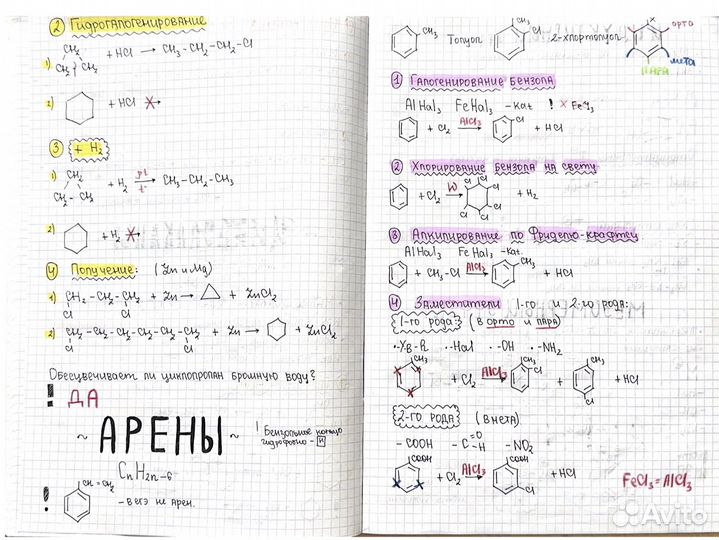 ② Гидрогалогенирование
1) CH₂ CH₂ CH₂ + HCl → CH₃-CH₂-CH₂-Cl
2) + HCl
③ + H₂
1) CH₂ CH₂-CH₂ + H₂ → CH₃-CH₂-CH₃
2) + H₂
④ Получение: (Zn и Mg)
1) CH₂-CH₂-CH₂ + Zn → + ZnCl₂
Cl Cl
2) CH₂-CH₂-CH₂-CH₂-CH₂-CH₂ + Zn → + ZnCl₂
Cl Cl
Обесцвечивает ли циклопропан бромную воду?
! ДА
~ АРЕНЫ ~
! Бензольное кольцо
гидрофобно - н
CnH2n-6
! CH=CH₂
- в егэ не арен.
CH₃ Толуол CH₃ Cl 2-хлортолуол X орто мета ПАРА
① Галогенирование бензола
AlHal₃ FeHal₃ - kat !
+ Cl₂ AlCl₃ → Cl + HCl
② Хлорирование бензола на свету
+ Cl₂ → Cl Cl Cl Cl Cl Cl + H₂
③ Алкилирование по Фриделю-крафтсу
AlHal₃ FeHal₃ - kat.
+ CH₃-Cl AlCl₃ → CH₃ + HCl
④ Заместители 1-го и 2-го рода:
1-го рода: (в орто и пара)
·Hal ·-OH ·-NH₂
CH₃ + Cl₂ AlCl₃ → CH₃ Cl + CH₃ Cl + HCl
2-го рода (в мета)
-COOH -C=O-H -NO₂
COOH + Cl₂ AlCl₃ → COOH Cl + HCl
FeCl₃=AlCl₃
Avito